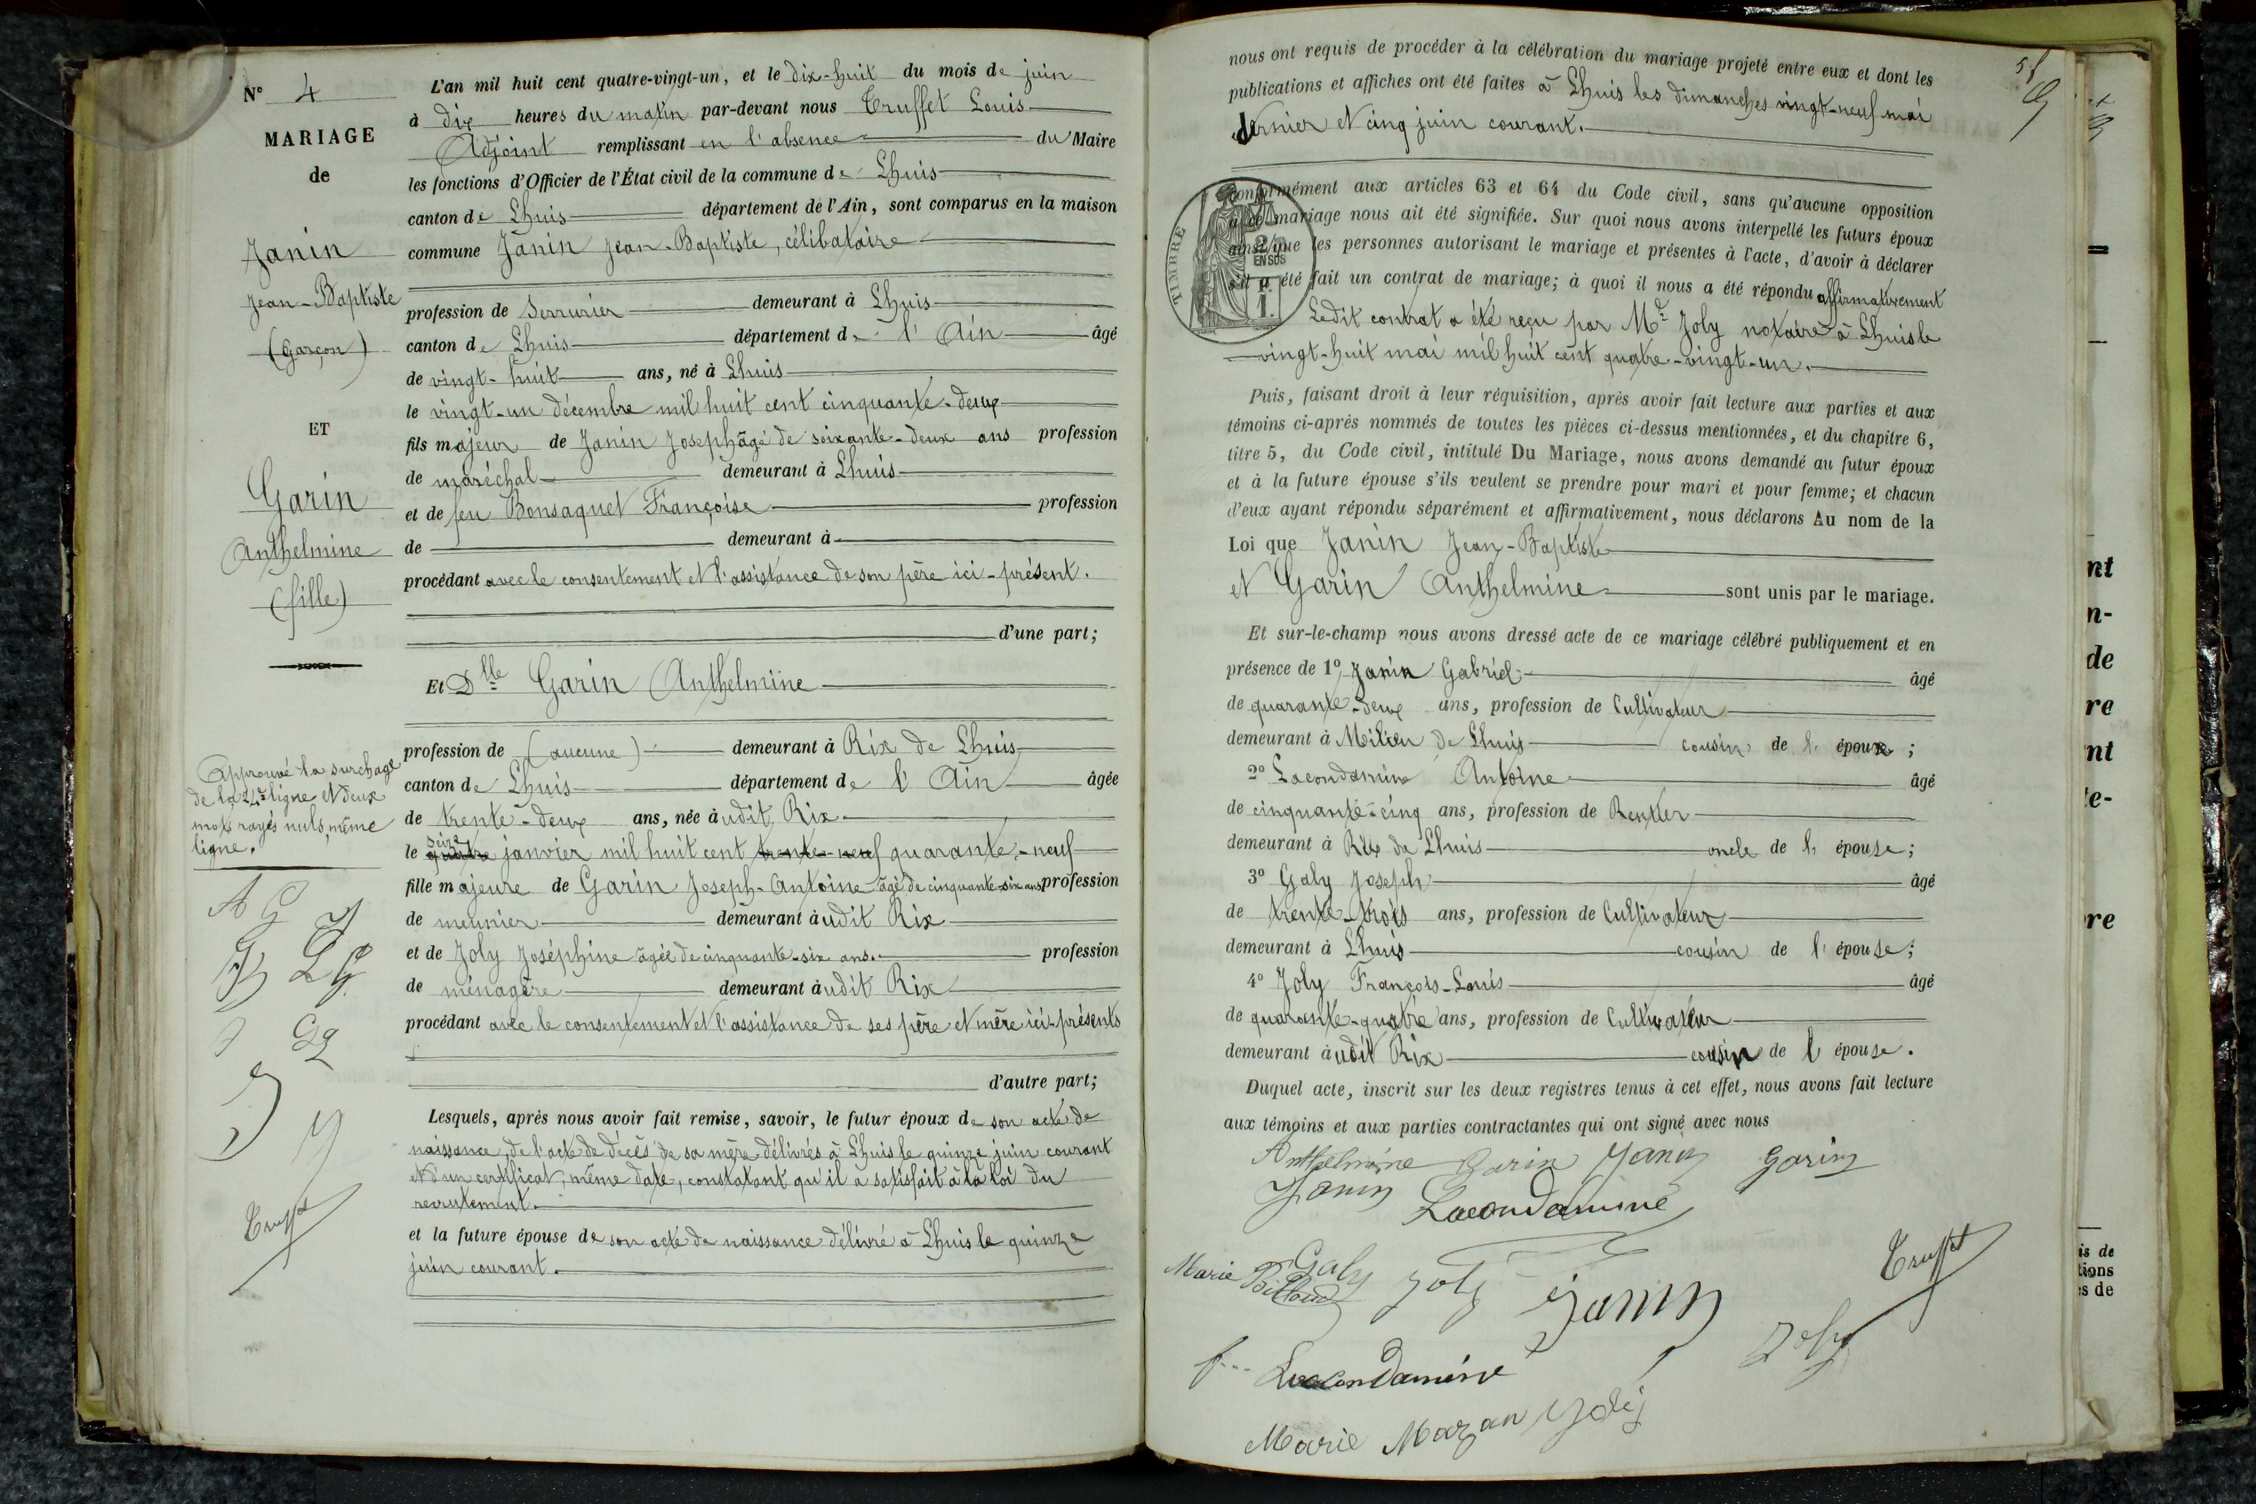 N° 4
MARIAGE
de
Janin
Jean-Baptiste
(Garçon)
ET
Garin
Anthelmine
(fille)
Approuvé la surchage
de la 24e ligne et deux
mots rayés nuls, même
ligne.
A G
L G
Truffet
L'an mil huit cent quatre-vingt-un, et le dix-huit du mois de juin
à dix heures du matin par-devant nous Truffet Louis
Adjoint remplissant en l'absence du Maire
les fonctions d'Officier de l'État civil de la commune de Lhuis
canton de Lhuis département de l'Ain, sont comparus en la maison
commune Janin Jean-Baptiste, célibataire
profession de Serrurier demeurant à Lhuis
canton de Lhuis département de l'Ain âgé
de vingt-huit ans, né à Lhuis
le vingt-un décembre mil huit cent cinquante-deux
fils majeur de Janin Joseph âgé de soixante-deux ans profession
de maréchal demeurant à Lhuis
et de feu Bonsaquet Françoise profession
de demeurant à
procédant avec le consentement et l'assistance de son père ici-présent.
d'une part;
Et Dlle Garin Anthelmine
profession de (aucune) demeurant à Rix de Lhuis
canton de Lhuis département de l'Ain âgée
de trente-deux ans, née audit Rix
le quatre seize janvier mil huit cent trente-neuf quarante-neuf
fille majeure de Garin Joseph-Antoine âgé de cinquante-six ans profession
de meunier demeurant audit Rix
et de Joly Joséphine âgée de cinquante-six ans. profession
de ménagère demeurant audit Rix
procédant avec le consentement et l'assistance de ses père et mère ici-présents
d'autre part;
Lesquels, après nous avoir fait remise, savoir, le futur époux de son acte de
naissance, de l'acte de décès de sa mère délivrés à Lhuis le quinze juin courant
et d'un certificat, même date, constatant qu'il a satisfait à la loi du
recrutement.
et la future épouse de son acte de naissance délivré à Lhuis le quinze
juin courant.
nous ont requis de procéder à la célébration du mariage projeté entre eux et dont les
publications et affiches ont été faites à Lhuis les dimanches vingt-neuf mai
dernier et cinq juin courant.
conformément aux articles 63 et 64 du Code civil, sans qu'aucune opposition
à ce mariage nous ait été signifiée. Sur quoi nous avons interpellé les futurs époux
ainsi que les personnes autorisant le mariage et présentes à l'acte, d'avoir à déclarer
s'il a été fait un contrat de mariage; à quoi il nous a été répondu affirmativement
Ledit contrat a été reçu par Me Joly notaire à Lhuis le
vingt-huit mai mil huit cent quatre-vingt-un.
TIMBRE
2/10
EN SUS
1F.
Puis, faisant droit à leur réquisition, après avoir fait lecture aux parties et aux
témoins ci-après nommés de toutes les pièces ci-dessus mentionnées, et du chapitre 6,
titre 5, du Code civil, intitulé Du Mariage, nous avons demandé au futur époux
et à la future épouse s'ils veulent se prendre pour mari et pour femme; et chacun
d'eux ayant répondu séparément et affirmativement, nous déclarons Au nom de la
Loi que Janin Jean-Baptiste
et Garin Anthelmine sont unis par le mariage.
Et sur-le-champ nous avons dressé acte de ce mariage célébré publiquement et en
présence de 1° Janin Gabriel âgé
de quarante-deux ans, profession de Cultivateur
demeurant à Milieu de Lhuis cousin de l'époux;
2° Lacondamine Antoine âgé
de cinquante-cinq ans, profession de Rentier
demeurant à Rix de Lhuis oncle de l'épouse;
3° Galy Joseph âgé
de trente-trois ans, profession de Cultivateur
demeurant à Lhuis cousin de l'épouse;
4° Joly François-Louis âgé
de quarante-quatre ans, profession de Cultivateur
demeurant audit Rix cousin de l'épouse.
Duquel acte, inscrit sur les deux registres tenus à cet effet, nous avons fait lecture
aux témoins et aux parties contractantes qui ont signé avec nous
Anthelmine Garin Janin Garin
Janin Lacondamine
Galy Joly Janin Truffet
Marie Billoud
Joly
f... Lacondamine
Marie Mazan Joly
nt
n-
de
re
nt
te-
re
is de
tions
s de